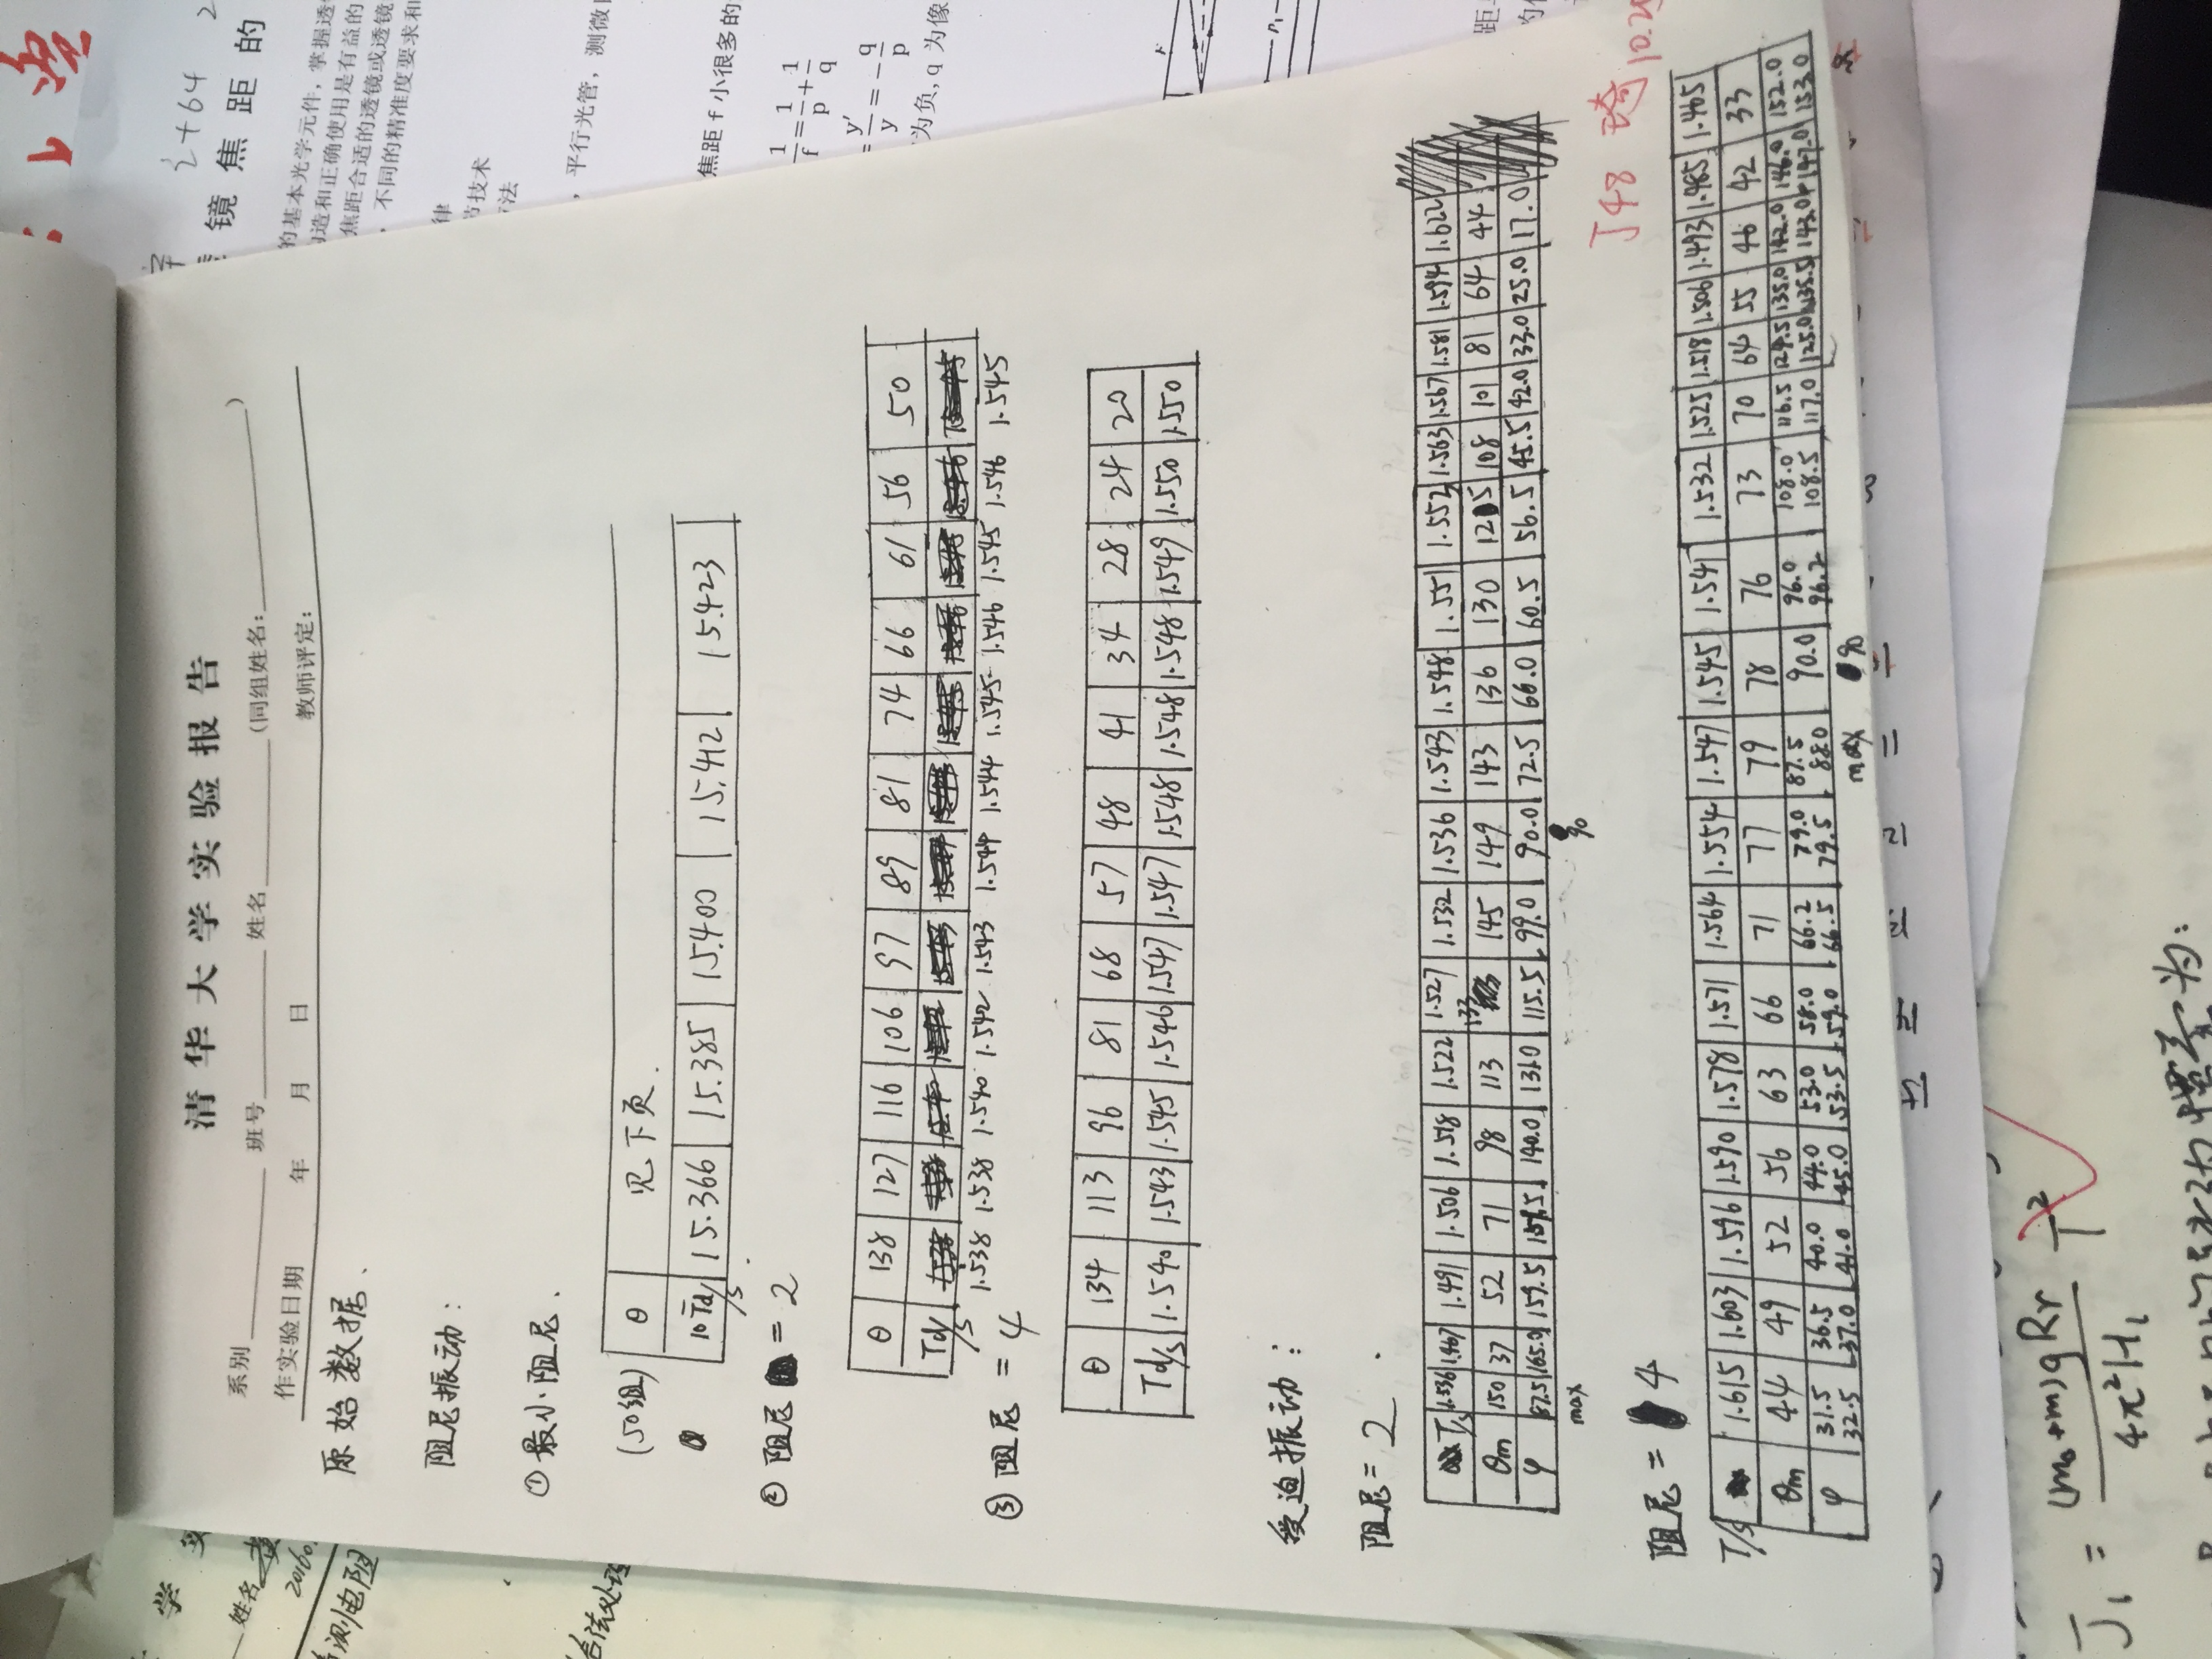 清华大学实验报告
系别 班号 姓名 (同组姓名: )
作实验日期 年 月 日 教师评定:
原始数据.
阻尼振动:
① 最小阻尼.
(50组) θ 见下页.
10Td/s 15.366 15.385 15.400 15.412 15.423
② 阻尼 = 2
θ 138 127 116 106 97 89 81 74 66 61 56 50
Td/s
1.538 1.538 1.540 1.542 1.543 1.544 1.544 1.545 1.546 1.545 1.546 1.545
③ 阻尼 = 4
θ 134 113 96 81 68 57 48 41 34 28 24 20
Td/s 1.540 1.543 1.545 1.546 1.547 1.547 1.548 1.548 1.548 1.549 1.550 1.550
受迫振动:
阻尼 = 2.
T/s 1.536 1.467 1.491 1.506 1.518 1.522 1.527 1.532 1.536 1.543 1.548 1.551 1.552 1.563 1.567 1.581 1.594 1.622
θm 150 37 52 71 98 113 133 145 149 143 136 130 125 108 101 81 64 44
φ 87.5 165.0 159.5 140.0 131.0 115.5 99.0 90.0 72.5 66.0 60.5 56.5 45.5 42.0 33.0 25.0 17.0
max 90
J48 琦
阻尼 = 4
T/s 1.615 1.603 1.596 1.590 1.578 1.571 1.564 1.554 1.547 1.545 1.541 1.532 1.525 1.518 1.506 1.493 1.485 1.465
θm 44 49 52 56 63 66 71 77 79 78 76 73 70 64 55 46 42 33
φ 31.5 36.5 40.0 44.0 53.0 58.0 66.2 79.0 87.5 90.0 96.0 108.0 116.5 124.5 135.0 142.0 146.0 152.0
32.5 37.0 41.0 45.0 53.5 59.0 66.5 79.5 88.0 96.2 108.5 117.0 125.0 135.5 143.0 147.0 153.0
max 90
学
姓名
测电阻
合法处理
镜焦距的
的基本光学元件，掌握透
造和正确使用是有益的
焦距合适的透镜或透镜
，不同的精准度要求和
律
节技术
方法
，平行光管，测微
焦距 f 小很多的
1/f=1/p+1/q
=y′/y=−q/p
为负,q 为像
J₁ = (m₀+m)gRr/4π²H₁ T²
惯量为: